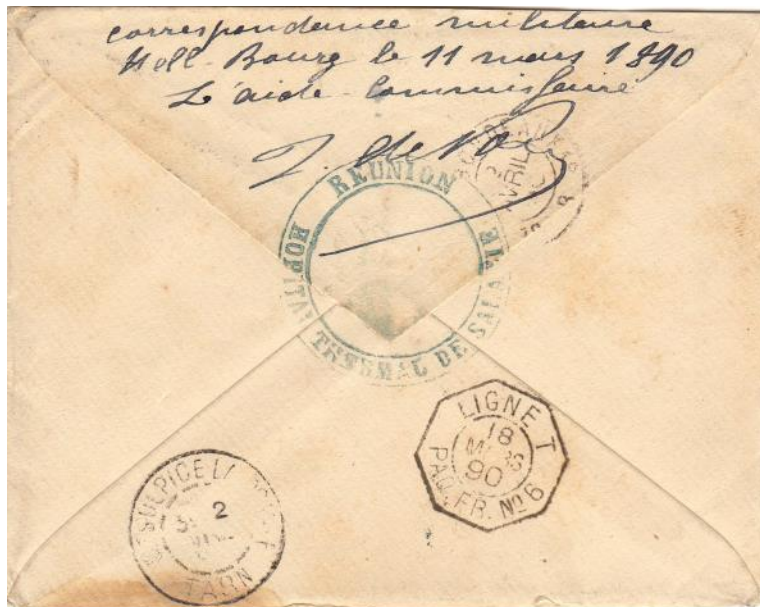 correspondance militaire
Hell-Bourg le 11 mars 1890
L'aide-Commissaire
REUNION
HOPITAL THERMAL DE SALAZIE
AVRIL
LIGNE T
18
MARS
90
PAQ. FR. Nº 6
ST SULPICE
2
TARN